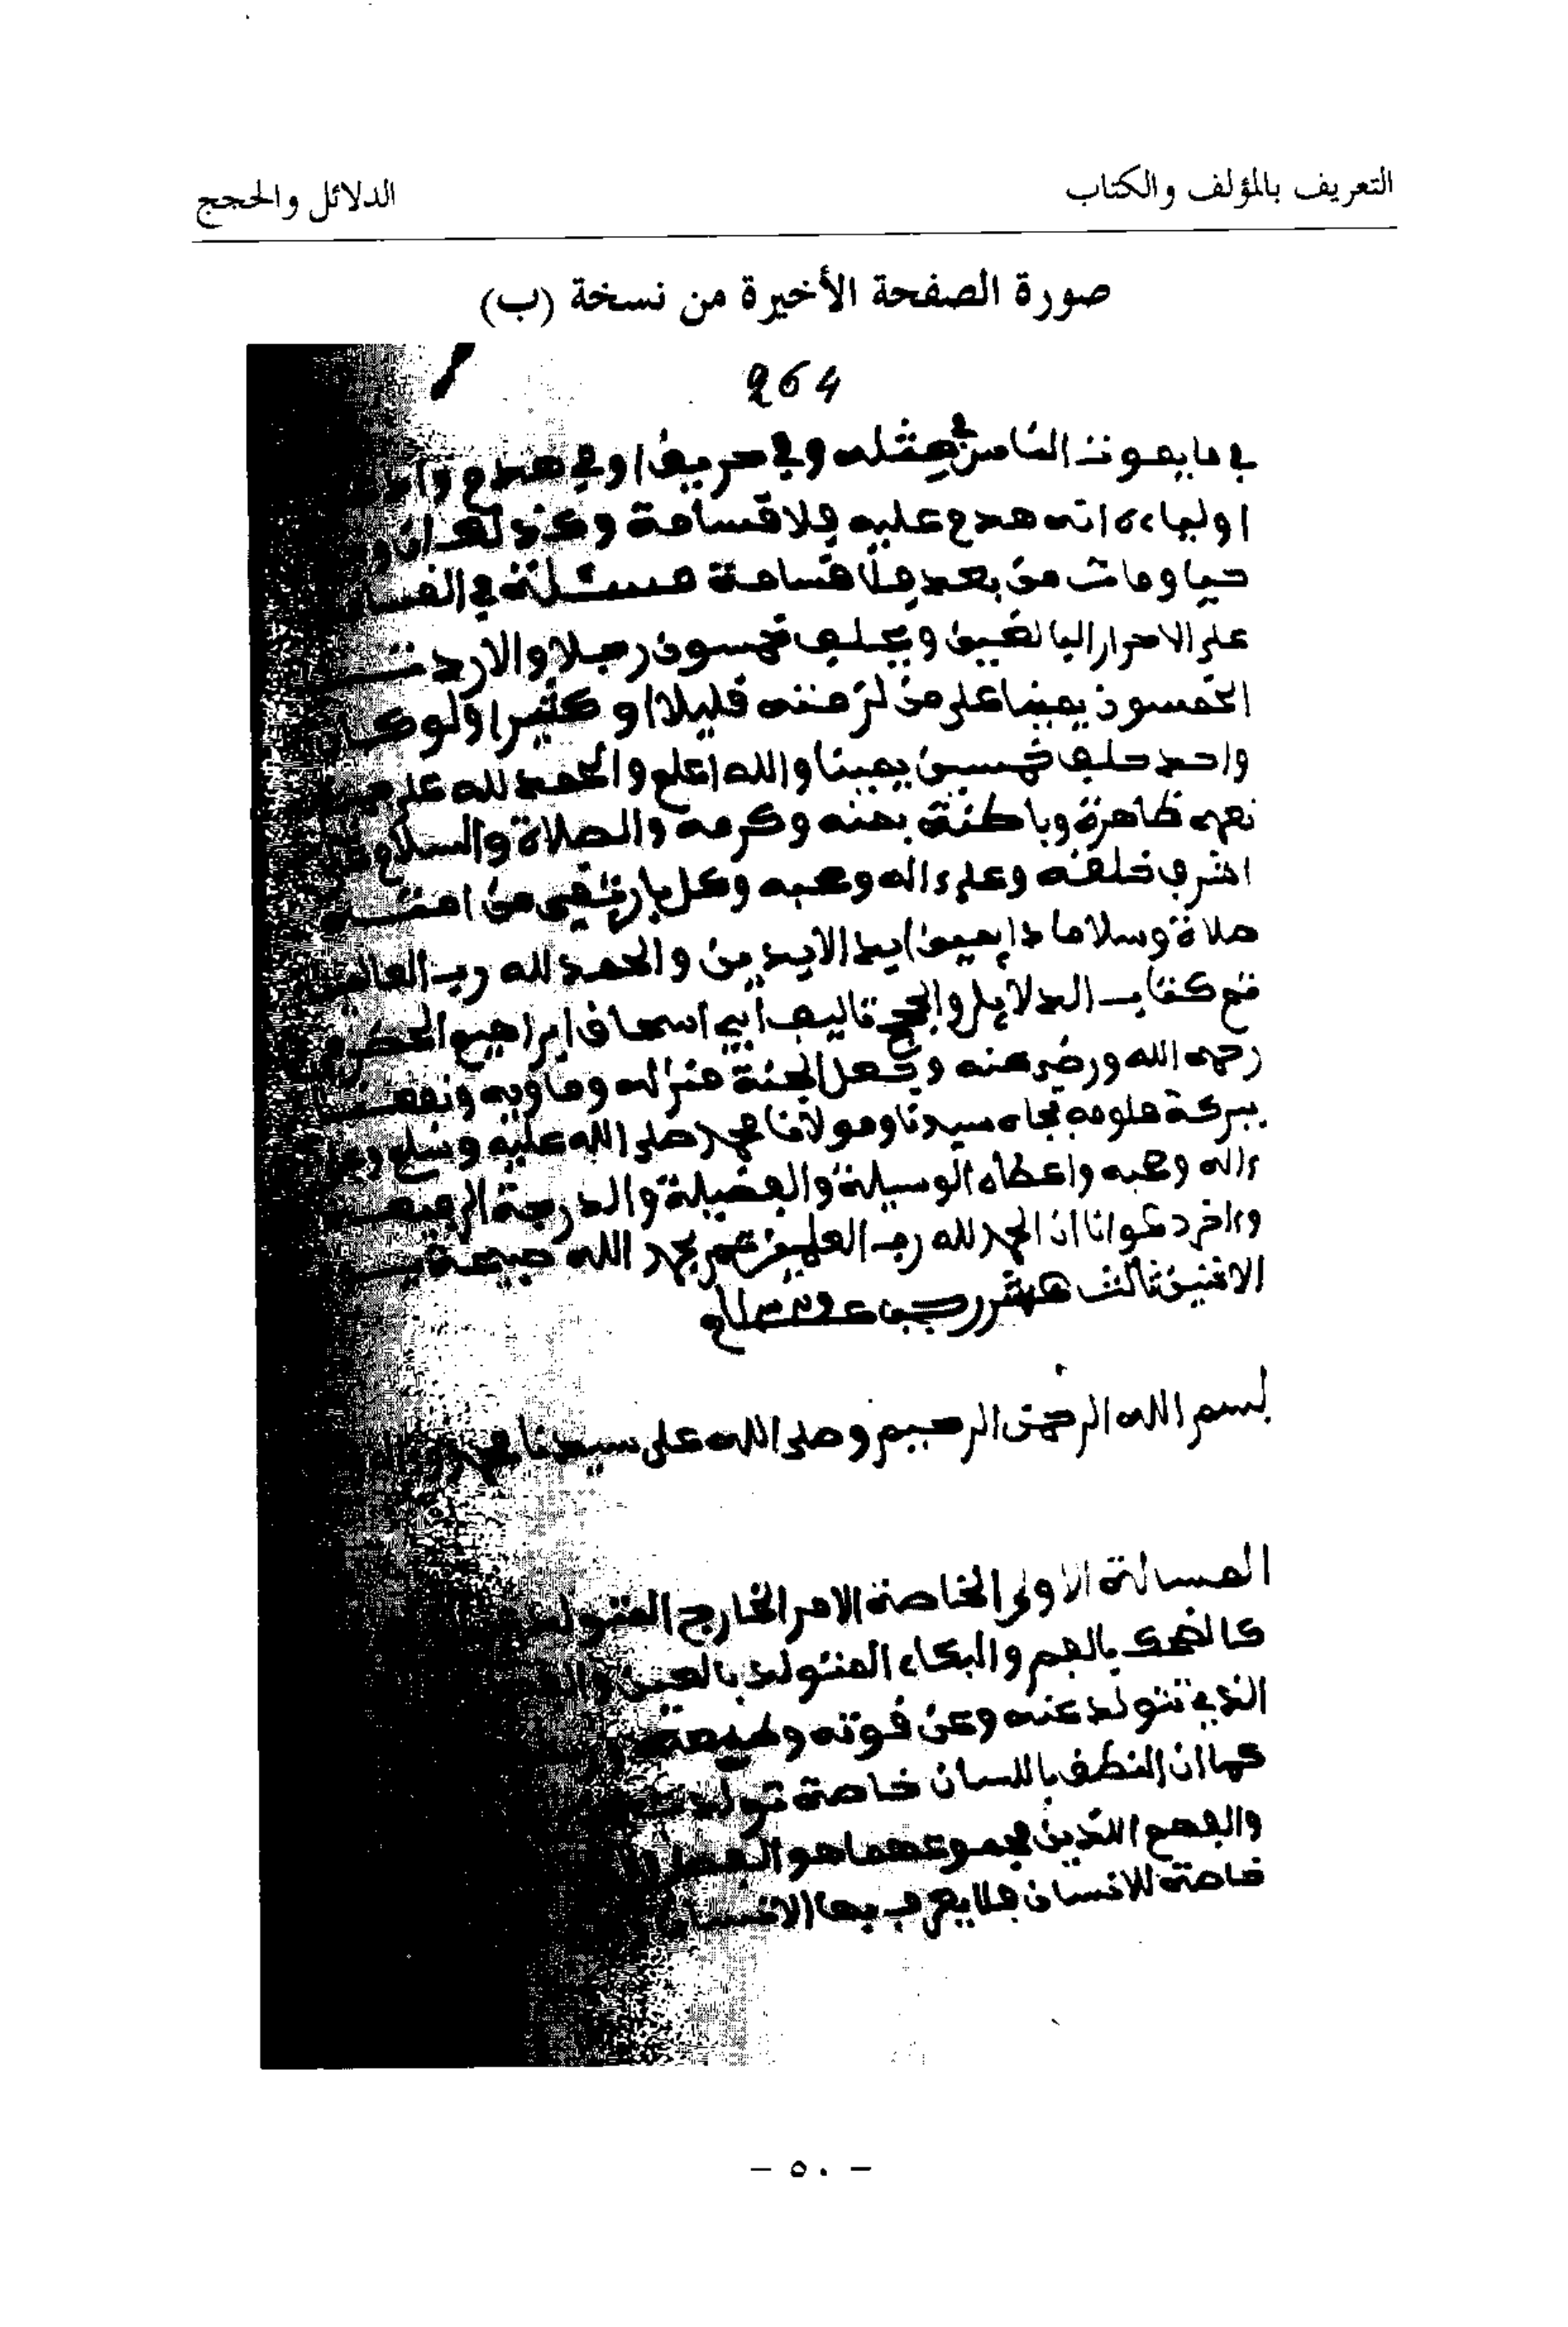 التعريف بالمؤلف والكتاب
الدلائل والحجج
صورة الصفحة الأخيرة من نسخة (ب)
264
في ما يموت الناس في مثله وفي حريق او في هدم
اولياءه انه هدم عليه فلا قسامة وكذلك ان
حيا ومات من بعد فلا قسامة مسئلة في
على الاحرار البالغين ويحلف خمسون رجلا
الخمسون يمينا على من لزمته قليلا او كثيرا ولو كان
واحد حلف خمسين يمينا والله اعلم والحمد لله على
نعمه ظاهرة وباطنة بمنه وكرمه والصلاة والسلام
اشرف خلقه وعلى ءاله وصحبه وكل من
صلاة وسلاما دايمين ابد الابدين والحمد لله رب العالمين
تم كتاب الدلايل والحجج تاليف أبي اسحاق ابراهيم
رحمه الله ورضي عنه وجعل الجنة منزله وماويه
ببركة علومه بجاه سيدنا ومولانا محمد صلى الله عليه وسلم
ءاله وصحبه واعطاه الوسيلة والفضيلة والدرجة الرفيعة
وءاخر دعوانا ان الحمد لله رب العلمين بحمد الله صبيحة
الاثنين ثالث عشر رجب
بسم الله الرحمن الرحيم وصلى الله على سيدنا محمد
المسالة الاولى الخاصة الامر الخارج
كالضحك بالفم والبكاء المتولد بالعين
الذي تتولد عنه وعن قوته
كما ان النطق باللسان خاصة
والفهم اللذين مجموعهما هو
خاصة للانسان فلا يعرف بها الانسان
- ٥٠ -